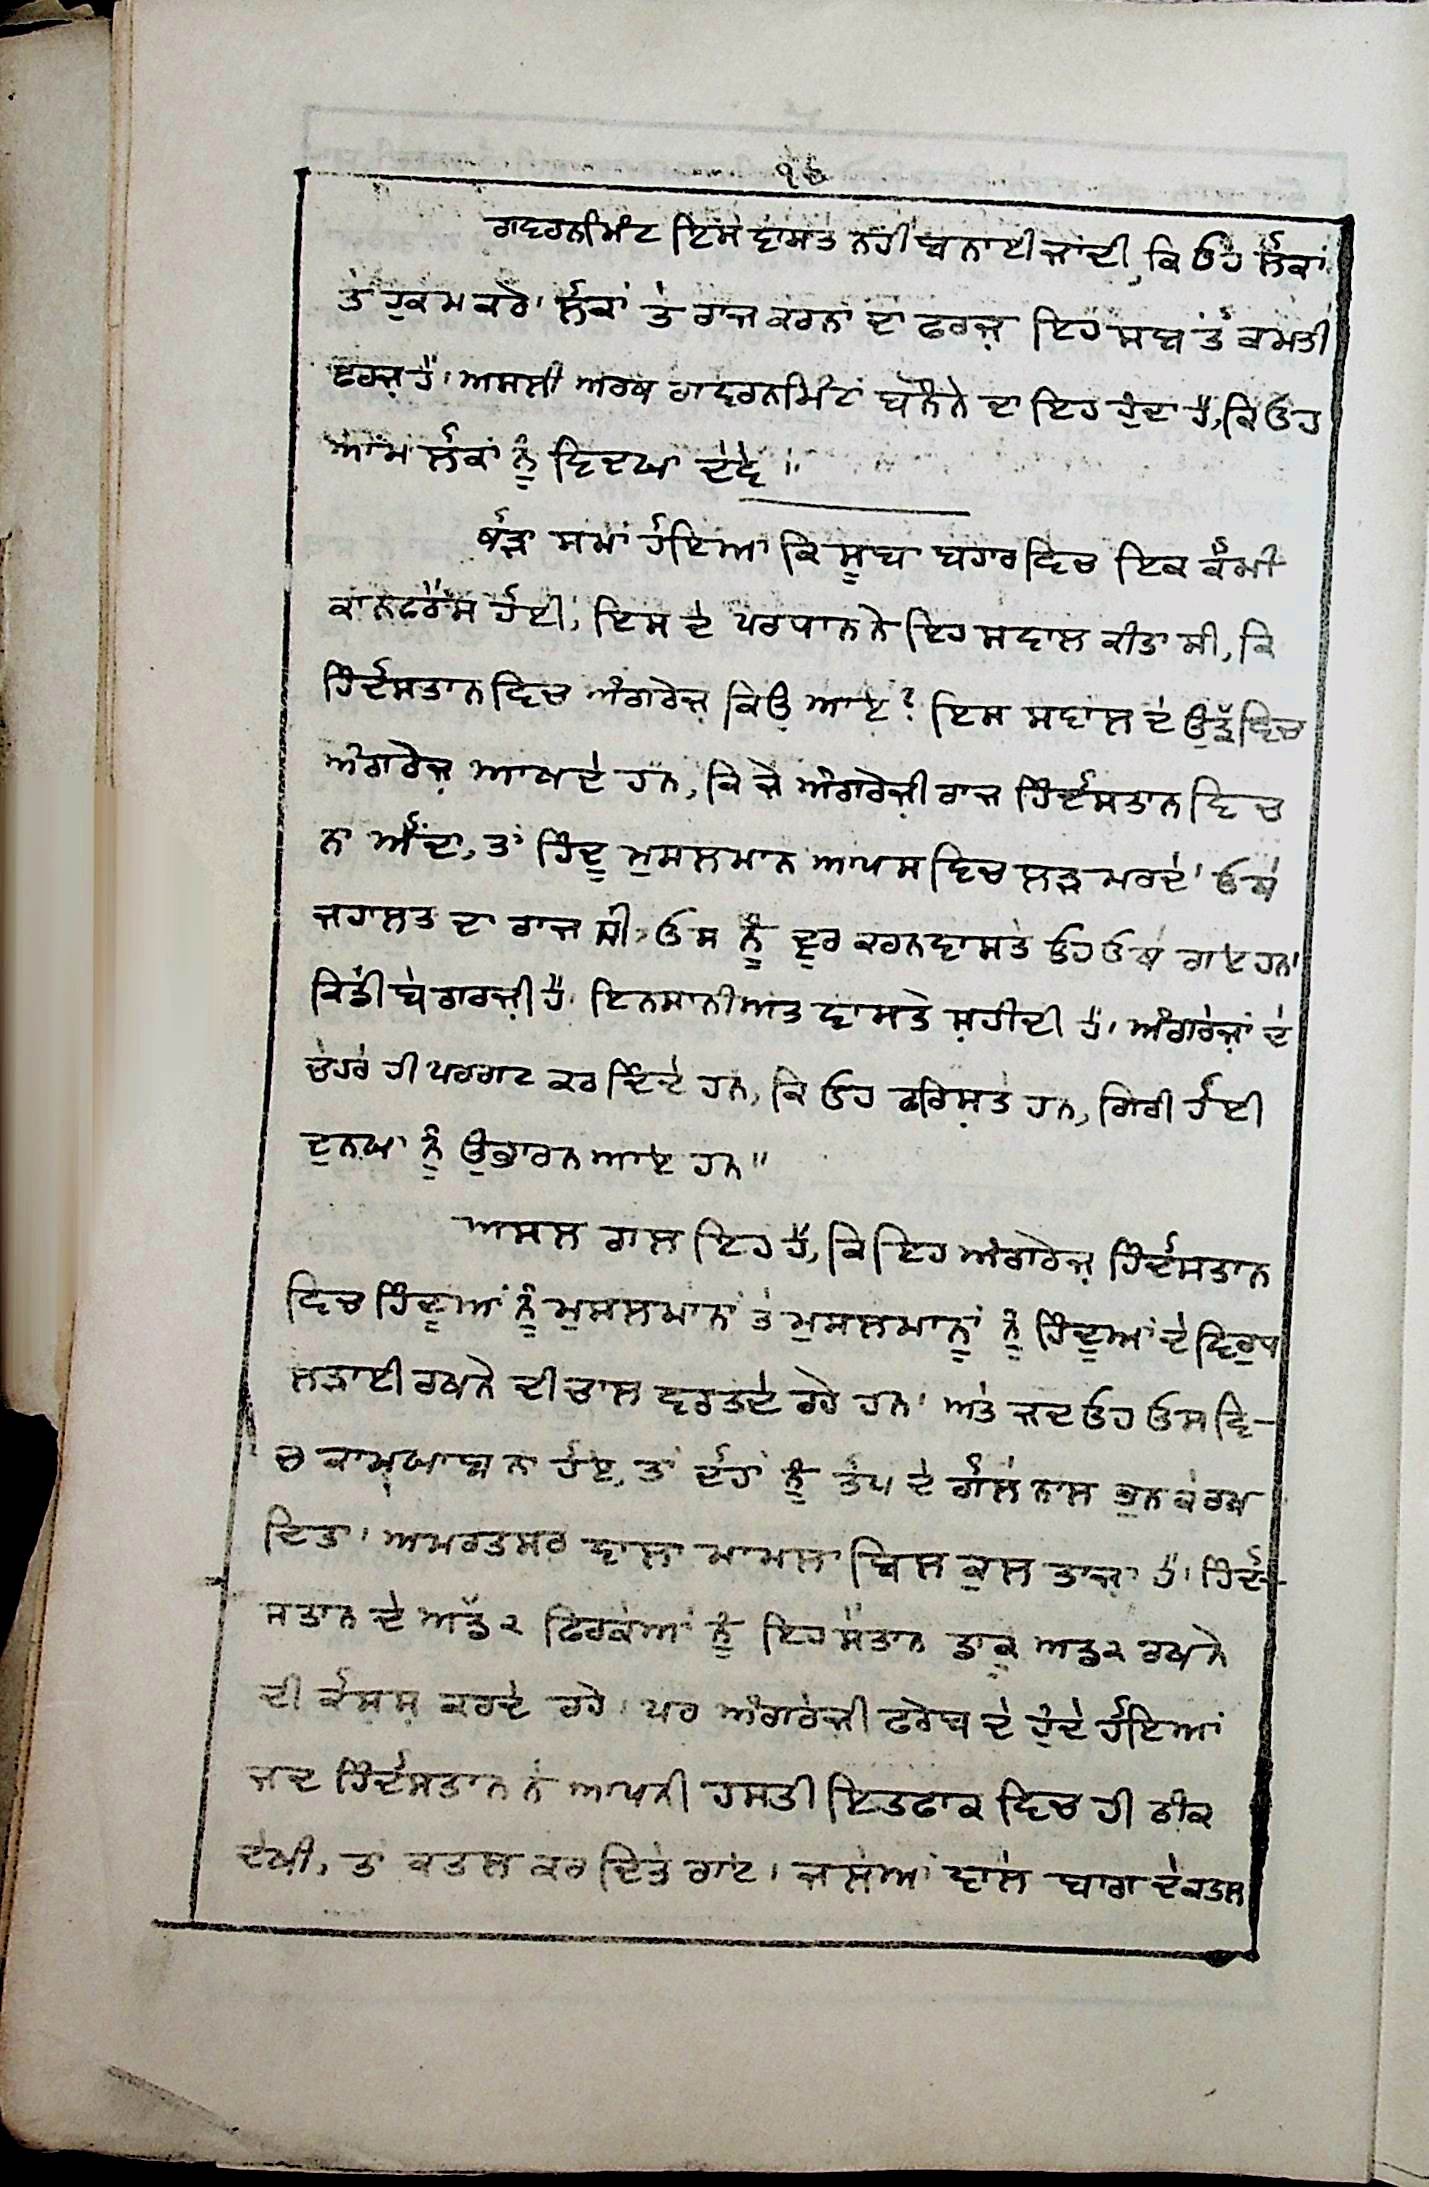 ੧੬
ਗਵਰਨਮਿੰਟ ਇਸ ਵਾਸਤੇ ਨਹੀਂ ਬਨਾਈ ਜਾਂਦੀ, ਕਿ ਓਹ ਲੋਕਾਂ
ਤੇ ਹੁਕਮ ਕਰੇ। ਲੋਕਾਂ ਤੇ ਰਾਜ ਕਰਨਾ ਦਾ ਫਰਜ਼ ਇਹ ਸਬ ਤੋਂ ਕਮਤੀ
ਫਰਜ਼ ਹੈ। ਅਸਲੀ ਅਰਥ ਗਵਰਨਮਿੰਟਾਂ ਬਨੌਨੇ ਦਾ ਇਹ ਹੁੰਦਾ ਹੈ, ਕਿ ਓਹ
ਆਮ ਲੋਕਾਂ ਨੂੰ ਵਿਦਯਾ ਦੇਵੇ"
ਥੋੜਾ ਸਮਾਂ ਹੋਇਆ ਕਿ ਸੂਬਾ ਬਹਾਰ ਵਿਚ ਇਕ ਕੌਮੀ
ਕਾਨਫਰੈਂਸ ਹੋਈ, ਇਸ ਦੇ ਪਰਧਾਨ ਨੇ ਇਹ ਸਵਾਲ ਕੀਤਾ ਸੀ, ਕਿ
ਹਿੰਦੋਸਤਾਨ ਵਿਚ ਅੰਗਰੇਜ਼ ਕਿਓਂ ਆਏ? ਇਸ ਸਵਾਲ ਦੇ ਉਤ੍ਰ ਵਿਚ
ਅੰਗਰੇਜ਼ ਆਖਦੇ ਹਨ, ਕਿ ਜੇ ਅੰਗਰੇਜ਼ੀ ਰਾਜ ਹਿੰਦੋਸਤਾਨ ਵਿਚ
ਨਾ ਔਂਦਾ, ਤਾਂ ਹਿੰਦੂ ਮੁਸਲਮਾਨ ਆਪਸ ਵਿਚ ਲੜ ਮਰਦੇ। ਓਥੇ
ਜਹਾਲਤ ਦਾ ਰਾਜ ਸੀ, ਓਸ ਨੂੰ ਦੂਰ ਕਰਨ ਵਾਸਤੇ ਓਹ ਓਥੇ ਗਏ ਹਨ।
ਕਿੰਡੀ ਬੇਗਰਜ਼ੀ ਹੈ। ਇਨਸਾਨੀਅਤ ਵਾਸਤੇ ਸ਼ਹੀਦੀ ਹੈ। ਅੰਗਰੇਜ਼ਾਂ ਦੇ
ਚੇਹਰੇ ਹੀ ਪਰਗਟ ਕਰ ਦਿੰਦੇ ਹਨ, ਕਿ ਓਹ ਫਰਿਸ਼ਤੇ ਹਨ, ਗਿਰੀ ਹੋਈ
ਦੁਨਯਾ ਨੂੰ ਉਭਾਰਨ ਆਏ ਹਨ"
ਅਸਲ ਗਲ ਇਹ ਹੈ, ਕਿ ਇਹ ਅੰਗਰੇਜ਼ ਹਿੰਦੋਸਤਾਨ
ਵਿਚ ਹਿੰਦੂਆਂ ਨੂੰ ਮੁਸਲਮਾਨਾਂ ਤੇ ਮੁਸਲਮਾਨਾਂ ਨੂੰ ਹਿੰਦੂਆਂ ਦੇ ਵਿਰੁਧ
ਲੜਾਈ ਰਖਨੇ ਦੀ ਚਾਲ ਵਰਤਦੇ ਰਹੇ ਹਨ। ਅਤੇ ਜਦ ਓਹ ਓਸ ਵਿ-
ਚ ਕਾਮਯਾਬ ਨਾ ਹੋਏ, ਤਾਂ ਦੋਹਾਂ ਨੂੰ ਤੋਪ ਦੇ ਗੋਲੇ ਨਾਲ ਭੁਨ ਕੇ ਰਖ
ਦਿਤਾ। ਅਮਰਤਸਰ ਵਾਲਾ ਮਾਮਲਾ ਬਿਲਕੁਲ ਤਾਜ਼ਾ ਹੈ। ਹਿੰਦੋ-
ਸਤਾਨ ਦੇ ਅਡ ੨ ਫਿਰਕਿਆਂ ਨੂੰ ਇਹ ਸ਼ੈਤਾਨ ਡਾਕੂ ਅਡ ੨ ਰਖਨੇ
ਦੀ ਕੋਸ਼ਸ਼ ਕਰਦੇ ਰਹੇ। ਪਰ ਅੰਗਰੇਜ਼ੀ ਫਰੇਬ ਦੇ ਹੁੰਦੇ ਹੋਇਆਂ
ਜਦ ਹਿੰਦੋਸਤਾਨ ਨੇ ਆਪਨੀ ਹਸਤੀ ਇਤਫਾਕ ਵਿਚ ਹੀ ਠੀਕ
ਦੇਖੀ, ਤਾਂ ਕਤਲ ਕਰ ਦਿਤੇ ਗਏ। ਜਲੇਆਂ ਵਾਲੇ ਬਾਗ ਦੇ ਕਤਲ